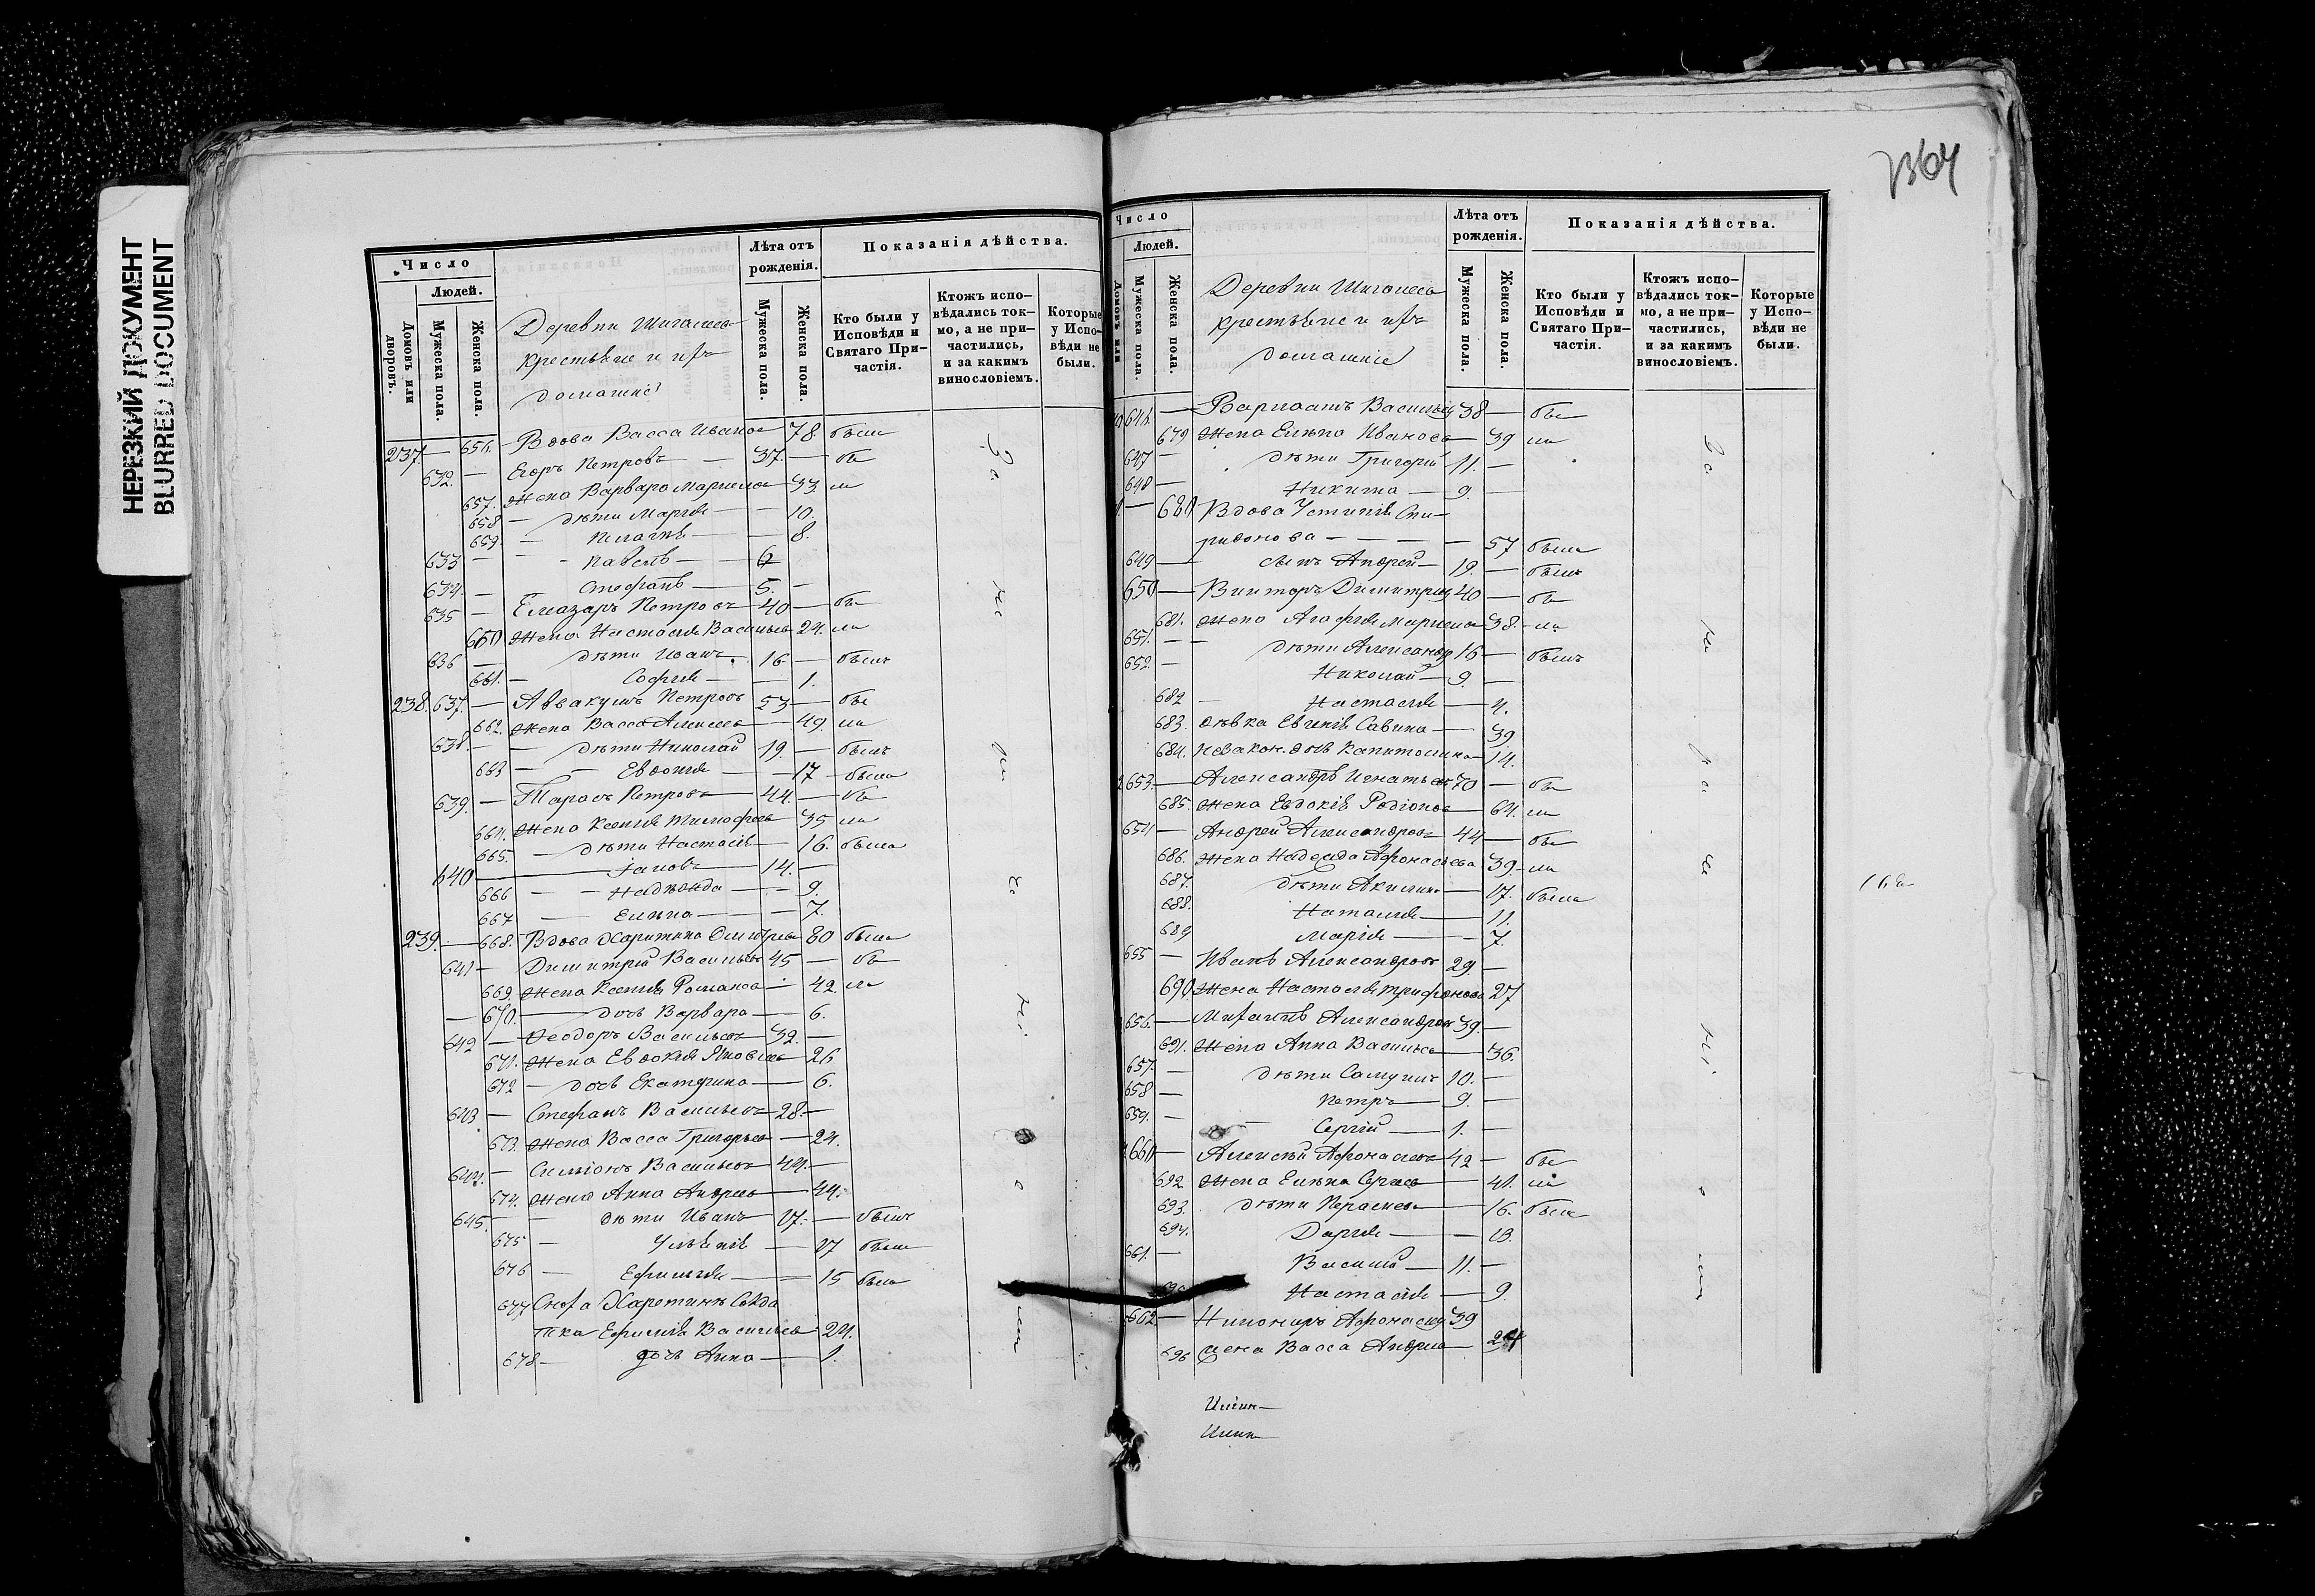 НЕРЕЗКИЙ ДОКУМЕНТ
BLURRED DOCUMENT
Число
Людей.
Домовъ или дворовъ.
Мужеска пола.
Женска пола.
Деревни
крестьяне и ихъ
домашніе
Лѣта отъ рожденія.
Мужеска пола.
Женска пола.
Показанія дѣйства.
Кто были у Исповѣди и Святаго При-частія.
Ктожъ испо-вѣдались ток-мо, а не при-частились, и за какимъ винословіемъ.
Которые у Испо-вѣди не были.
237. — 656. Вдова Васса Иванова 78. была
632. — Егоръ Петровъ — 37. — бы
657. Жена Варвара 33 ли
658 — дѣти Марія — 10.
659. — Пелагія — 8.
633 — Павелъ — 6
634. — Стефанъ — 5. —
635 — Елеазаръ Петровъ 40 — бы
660 Жена Настасія Васильева 24. ли
636 — дѣти Иванъ 16 — былъ
661. — Софія — 1.
238. 637. — Аввакумъ Петровъ 53 — бы
662. Жена Васса Алексѣева 49. ли
638. — дѣти Николай 19. — былъ
663 — Евдокія — 17 — была
639. — Тарасъ Петровъ 44. — бы
664. Жена Ксенія Тимофеева 35 ли
665. — дѣти Настасія 16. была
640 — Іаковъ 14. —
666 — Надежда — 9.
667 — Елена — 7.
239. — 668. Вдова Харитина 80 была
641 — Димитрій Васильевъ 45 — бы
669. Жена Ксенія Романова 42 ли
— 670. — дочь Варвара — 6.
642 — Ѳеодоръ Васильевъ 32. —
671. Жена Евдокія Яковлева 26
672 — дочь Екатерина — 6.
643 — Стефанъ Васильевъ 28. —
673. Жена Васса Григорьева — 24.
644. — Симеонъ Васильевъ 44. —
674. Жена Анна Андреева — 44.
645. — дѣти Иванъ 17. — былъ
675 — Ульянія — 17 была
676 — Ефимія — 15 была
677 Сноха Харетина Солда
тка Ефимія Васильева 24.
678 — дочь Анна — 1.
Число
Людей.
Домовъ или
Мужеска пола.
Женска пола.
Деревни
крестьяне и ихъ
домашніе
Лѣта отъ рожденія.
Мужеска пола.
Женска пола.
Показанія дѣйства.
Кто были у Исповѣди и Святаго При-частія.
Ктожъ испо-вѣдались ток-мо, а не при-частились, и за какимъ винословіемъ.
Которые у Испо-вѣди не были.
646. — Варлаамъ Васильевъ 38 — бы
679 Жена Елена Иванова 39 ли
647 — дѣти Григорій 11. —
648 — Никита — 9. —
680 Вдова Устинія Спи-
ридонова — 57 была
649 — сынъ Андрей — 19. — былъ
650 — Викторъ Димитріевъ 40 — бы
681. Жена Агафія 38. ли
651. — дѣти Александръ 16 — былъ
652. — Николай — 9. —
682 — Настасія — 4.
683. Дѣвка Евгенія Савина — 39
684. Незакон. дочь Капитолина 14.
653. — Александръ Игнатьевъ 70 — бы
685. Жена Евдокія Родіонова 64. ли
654 — Андрей Александровъ 44 — бы
686. Жена Надежда Афонасьева 39. ли
687. дѣти Акилина — 17. была
688. Наталія — 11.
689 Марія — 7.
655 — Иванъ Александровъ 29. —
690 Жена Настасія Трифонова 27
656. — Михаилъ Александровъ 39. —
691. Жена Анна Васильева — 36.
657. — дѣти Самуилъ 10. —
658 — Петръ — 9. —
659. — Сергій — 1. —
660 — Алексѣй Афонасьевъ 42 — бы
692 Жена Елена Сергеева 41. ли
693. дѣти 16. была
694. Дарія — 13.
661. — Василій — 11. —
Настасія — 9.
662 — Никаноръ Афонасьевъ 39
696 Жена Васса Андреева 24